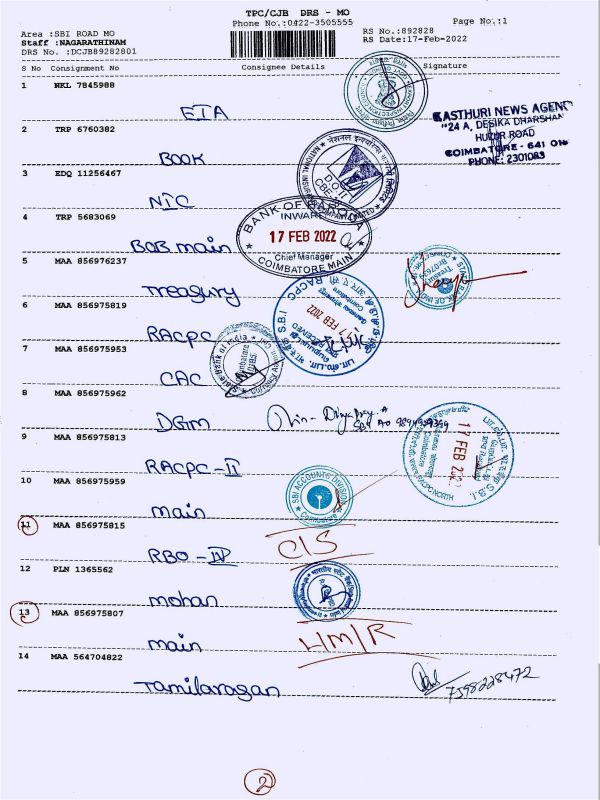 TPC/CJB DRS - MO
Phone No.:0422-3505555
Page No.:1
Area :SBI ROAD MO
Staff :NAGARATHINAM
DRS No. :DCJB89282801
RS No.:892828
RS Date:17-Feb-2022
S No Consignment No Consignee Details Signature
1 NKL 7845988
EIA
KASTHURI NEWS AGENT
"24 A, DESIKA DHARSHAN
HUZUR ROAD
COIMBATORE - 641 018
PHONE: 2301083
2 TRP 6760382
BOOK
3 EDQ 11256467
NIC
4 TRP 5683069
BOB main
BANK OF BARODA
INWARD
17 FEB 2022
Chief Manager
COIMBATORE MAIN
5 MAA 856976237
Treasury
6 MAA 856975819
RACPC
S.B.I RACPC
17 FEB 2022
7 MAA 856975953
CAC
State Bank of India
8 MAA 856975962
DGM
9 MAA 856975813
RACPC-II
17 FEB 202
10 MAA 856975959
main
SBI ACCOUNTS DIVISION
Coimbatore
11 MAA 856975815
RBO-IV
CIS
12 PLN 1365562
mohan
13 MAA 856975807
main
HM/R
14 MAA 564704822
Tamilarasan
7598228472
2